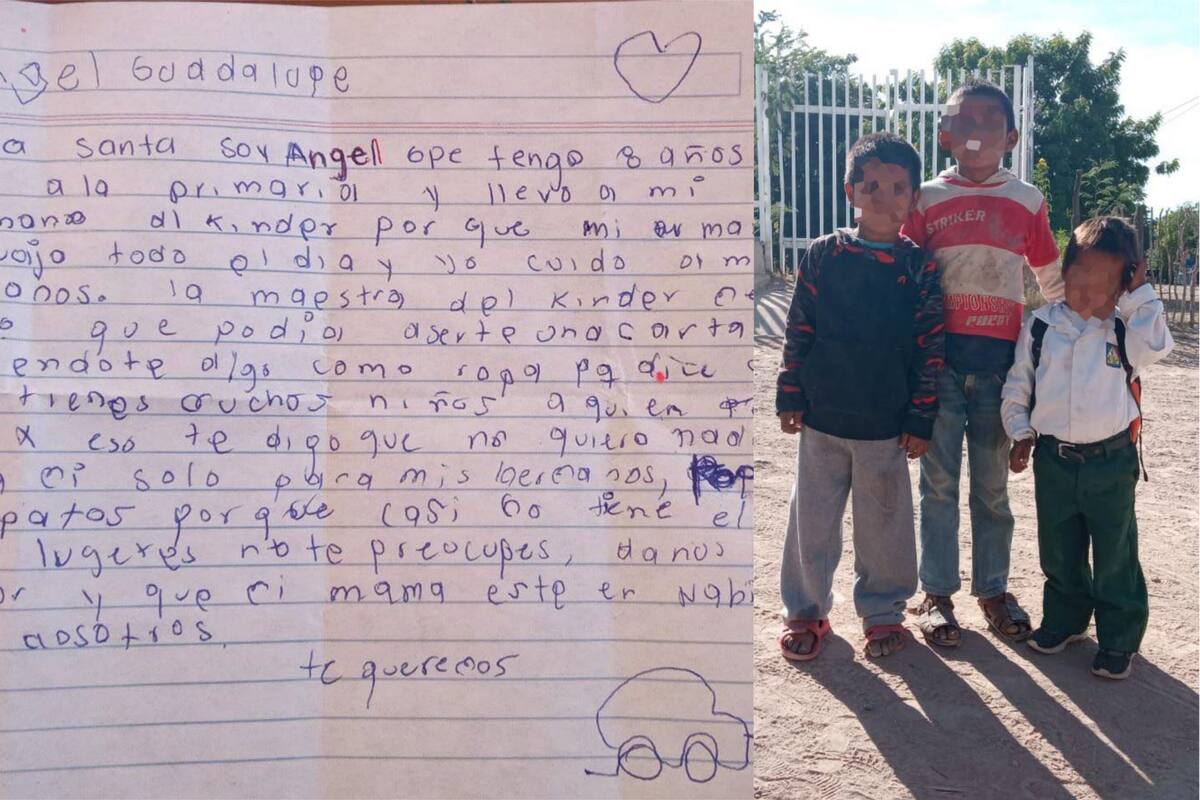 ngel Guadalupe
a santa soy Angel ope tengo 8 años
a la primaria y llevo a mi
mano al kinder por que mi ma
vaja todo el dia y yo cuido a m
anos. la maestra del kinder
que podia aserte una carta
endote algo como ropa pa dice
tienes muchos niños a quien
x eso te digo que no quiero nad
mi solo para mis hermanos,
patos porque casi no tiene el
lugeres no te preocupes, danos
or y que mi mama este en Nabi
nosotros.
te queremos
STRIKER
MPIONSHIP